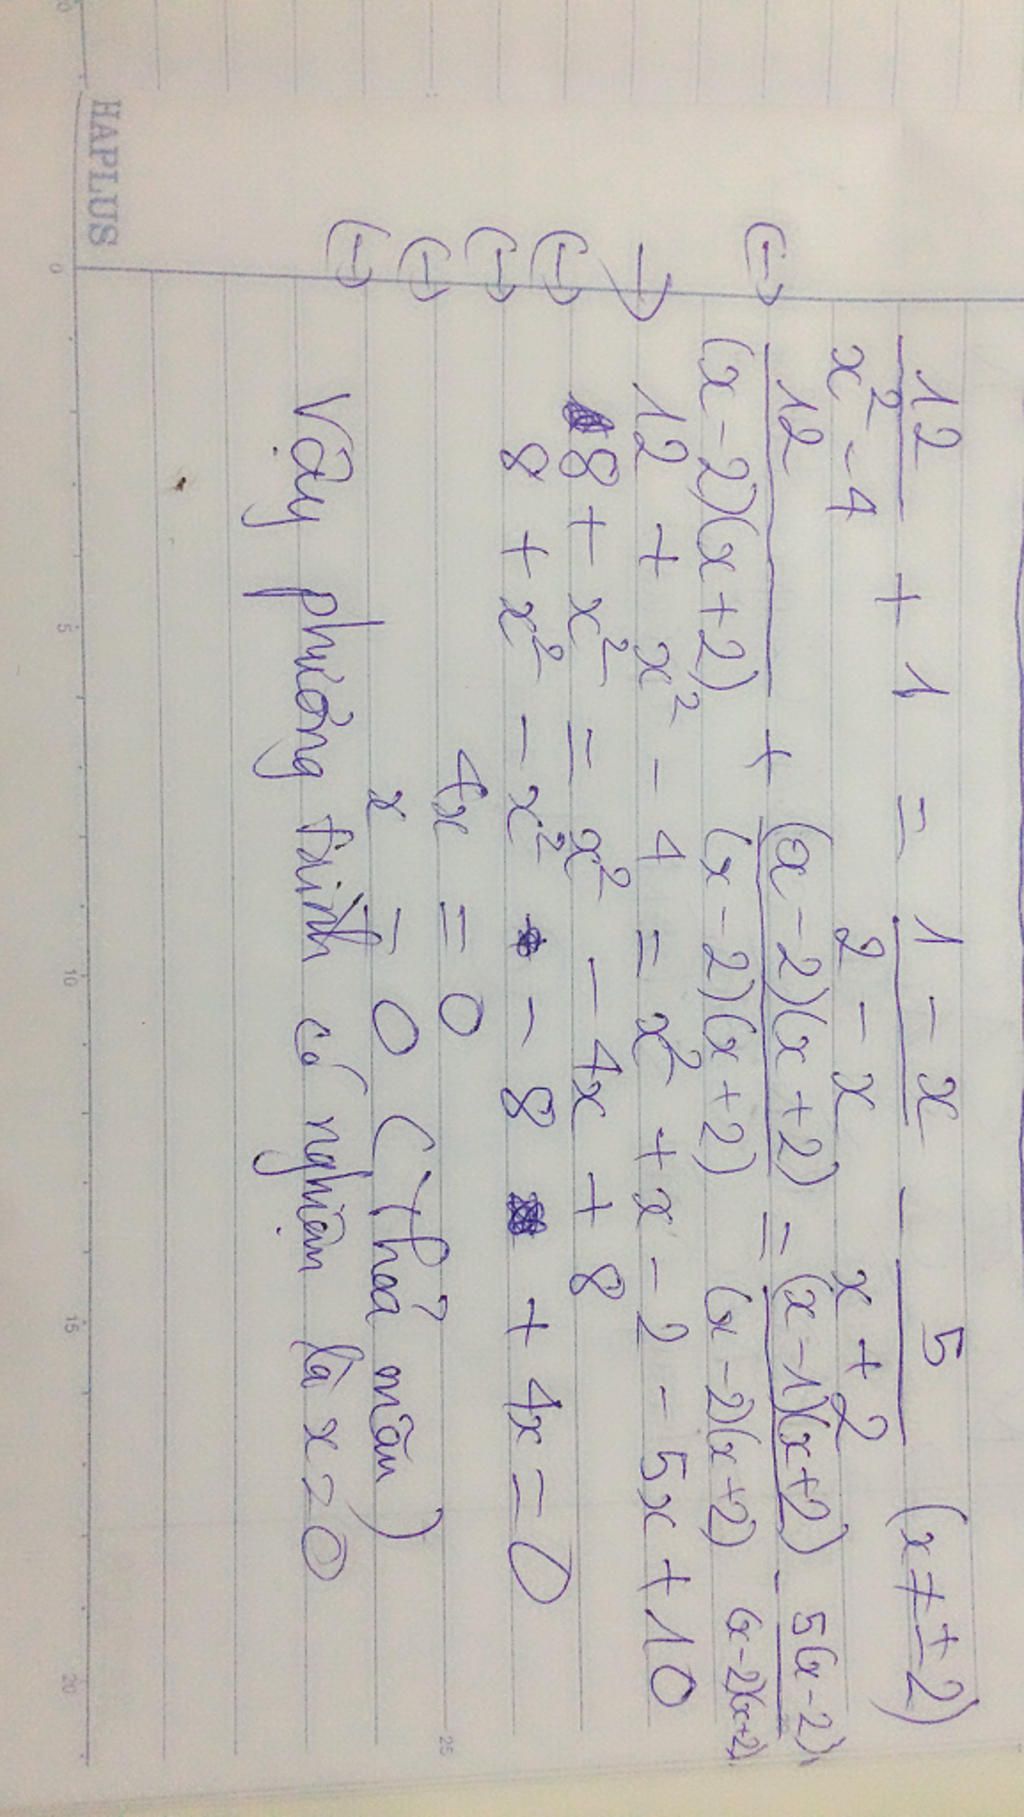 12/(x² - 4) + 1 = (1 - x)/(2 - x) - 5/(x + 2) (x ≠ ± 2)
⇔ 12/((x - 2)(x + 2)) + ((x - 2)(x + 2))/((x - 2)(x + 2)) = ((x - 1)(x + 2))/((x - 2)(x + 2)) - (5(x - 2))/((x - 2)(x + 2))
→ 12 + x² - 4 = x² + x - 2 - 5x + 10
⇔ 8 + x² = x² - 4x + 8
⇔ 8 + x² - x² - 8 + 4x = 0
⇔ 4x = 0
⇔ x = 0 (Thỏa mãn)
Vậy phương trình có nghiệm là x = 0
HAPLUS
0 5 10 15 20
25